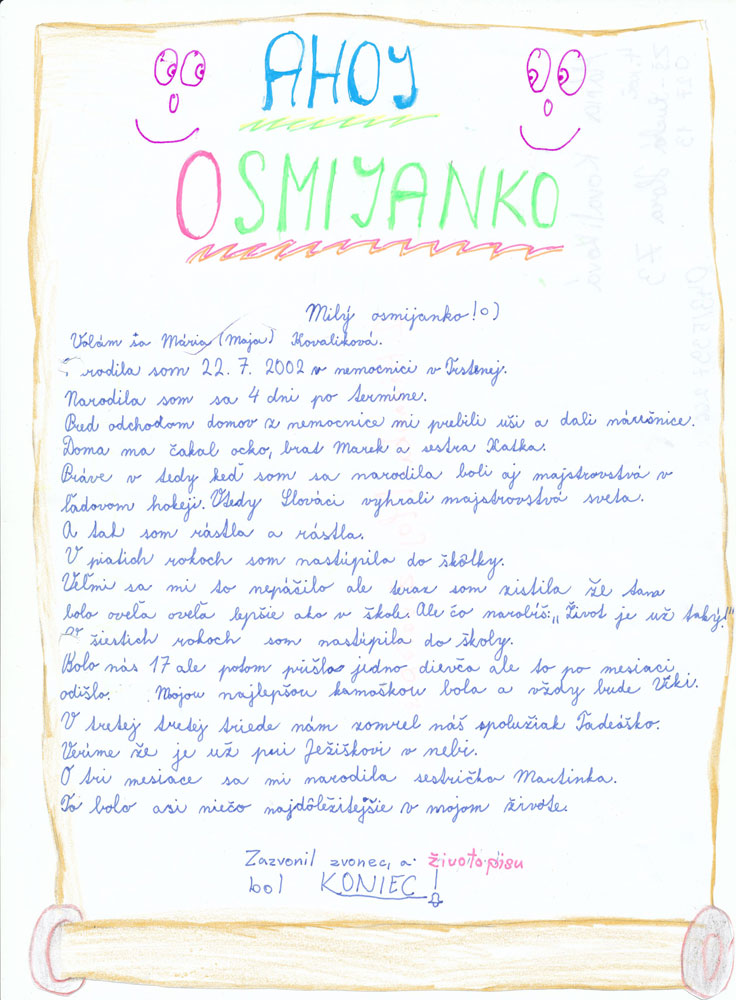 AHOJ
OSMIJANKO
Milý osmijanko!:)
Volám sa Mária (Maja) Kovalíková.
rodila som 22. 7. 2002 v nemocnici v Trstenej.
Narodila som sa 4 dni po termíne.
Pred odchodom domov z nemocnice mi prebili uši a dali náušnice.
Doma ma čakal ocko, brat Marek a sestra Katka.
Práve v tedy keď som sa narodila boli aj majstrovstvá v
ľadovom hokeji. Vtedy Slováci vyhrali majstrovstvá sveta.
A tak som rástla a rástla.
V piatich rokoch som nastúpila do škôlky.
Veľmi sa mi to nepáčilo ale teraz som zistila že tam
bolo oveľa oveľa lepšie ako v škole. Ale čo narobíš: „Život je už taký!"
V šiestich rokoch som nastúpila do školy.
Bolo nás 17 ale potom prišlo jedno dievča ale to po mesiaci
odišlo. Mojou najlepšou kamoškou bola a vždy bude Viki.
V tretej tretej triede nám zomrel náš spolužiak Tadeáško.
Veríme že je už pri Ježiškovi v nebi.
O tri mesiace sa mi narodila sestrička Martinka.
To bolo asi niečo najdôležitejšie v mojom živote.
Zazvonil zvonec, a životopisu
bol KONIEC!